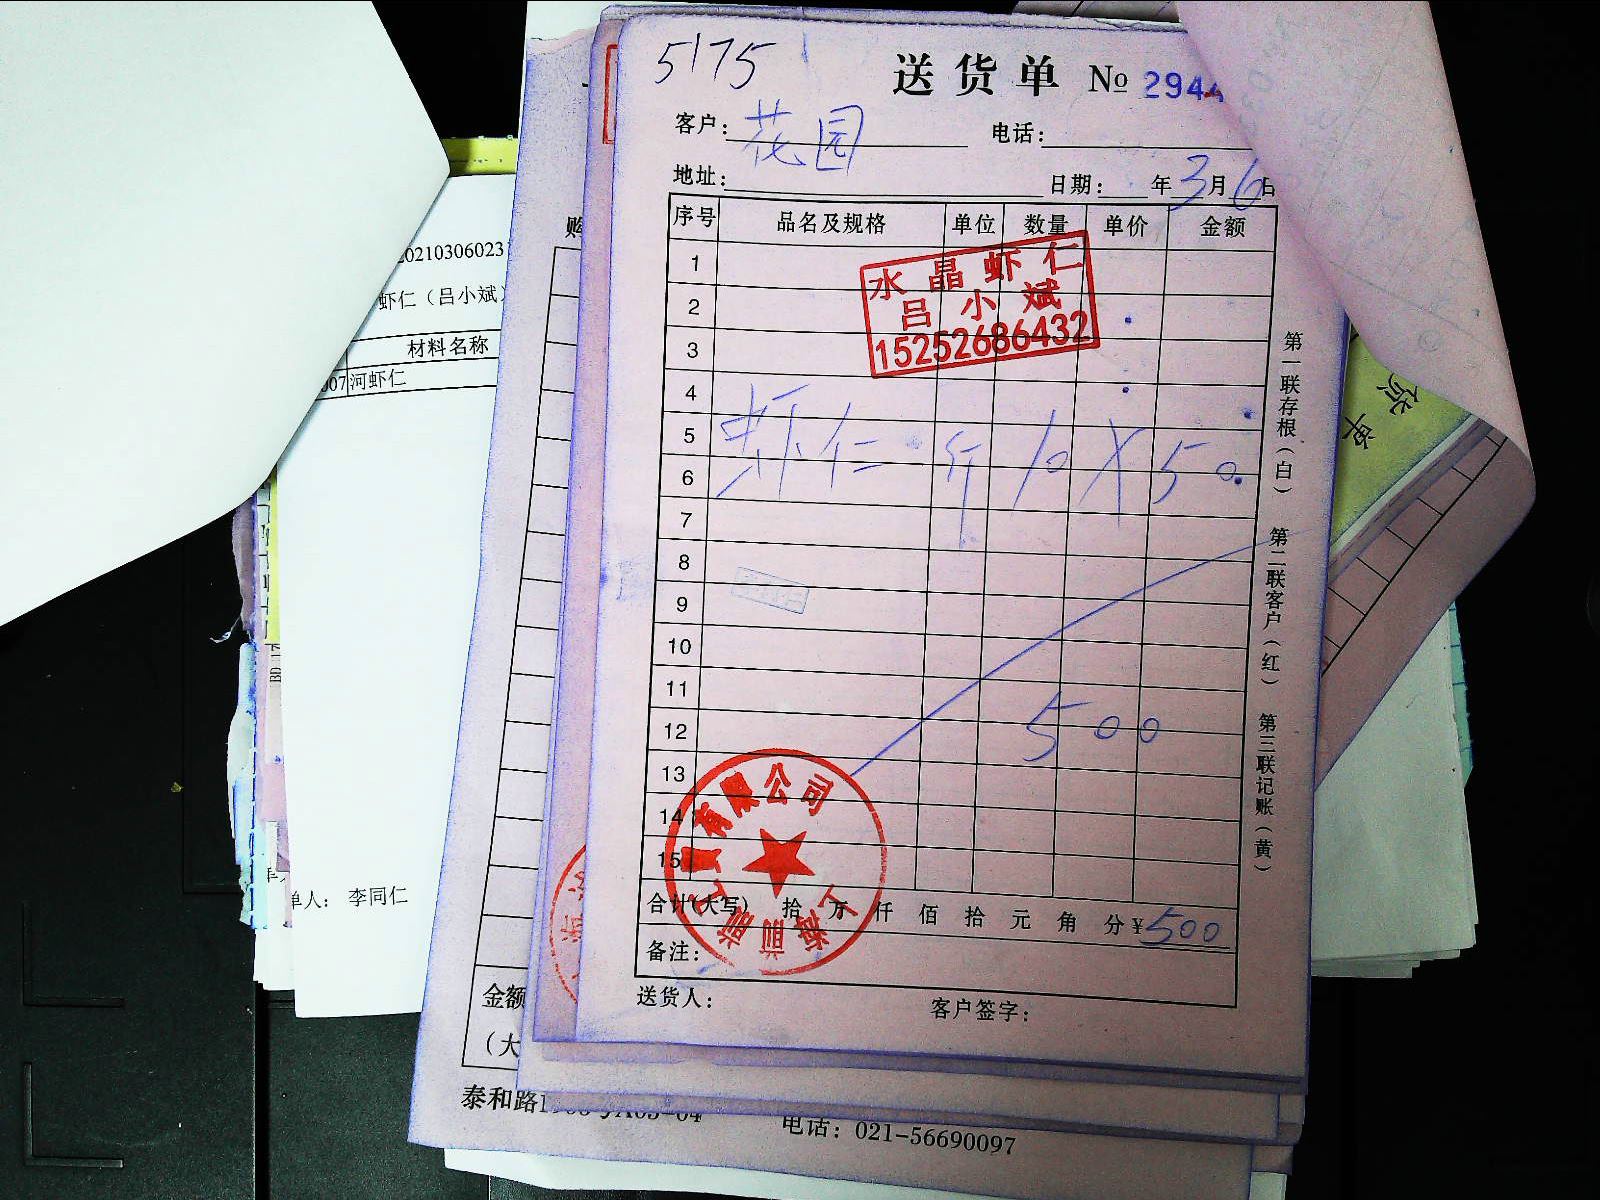 5175
送货单 № 2944
客户： 花园 电话：
地址： 日期： 年 3月 6日
序号 品名及规格 单位 数量 单价 金额
1
2
3
4
5
6
7
8
9
10
11
12
13
14
15
水晶虾仁
吕小斌
15252686432
虾仁 斤 10 X 50
500
有限公司
上海
合计(大写) 拾 万 仟 佰 拾 元 角 分 ¥ 500
备注：
送货人： 客户签字：
第一联存根（白） 第二联客户（红） 第三联记账（黄）
2021030602
虾仁（吕小斌）
材料名称
007 河虾仁
单人： 李同仁
购
金额
（大
泰和路
电话：021-56690097
货单